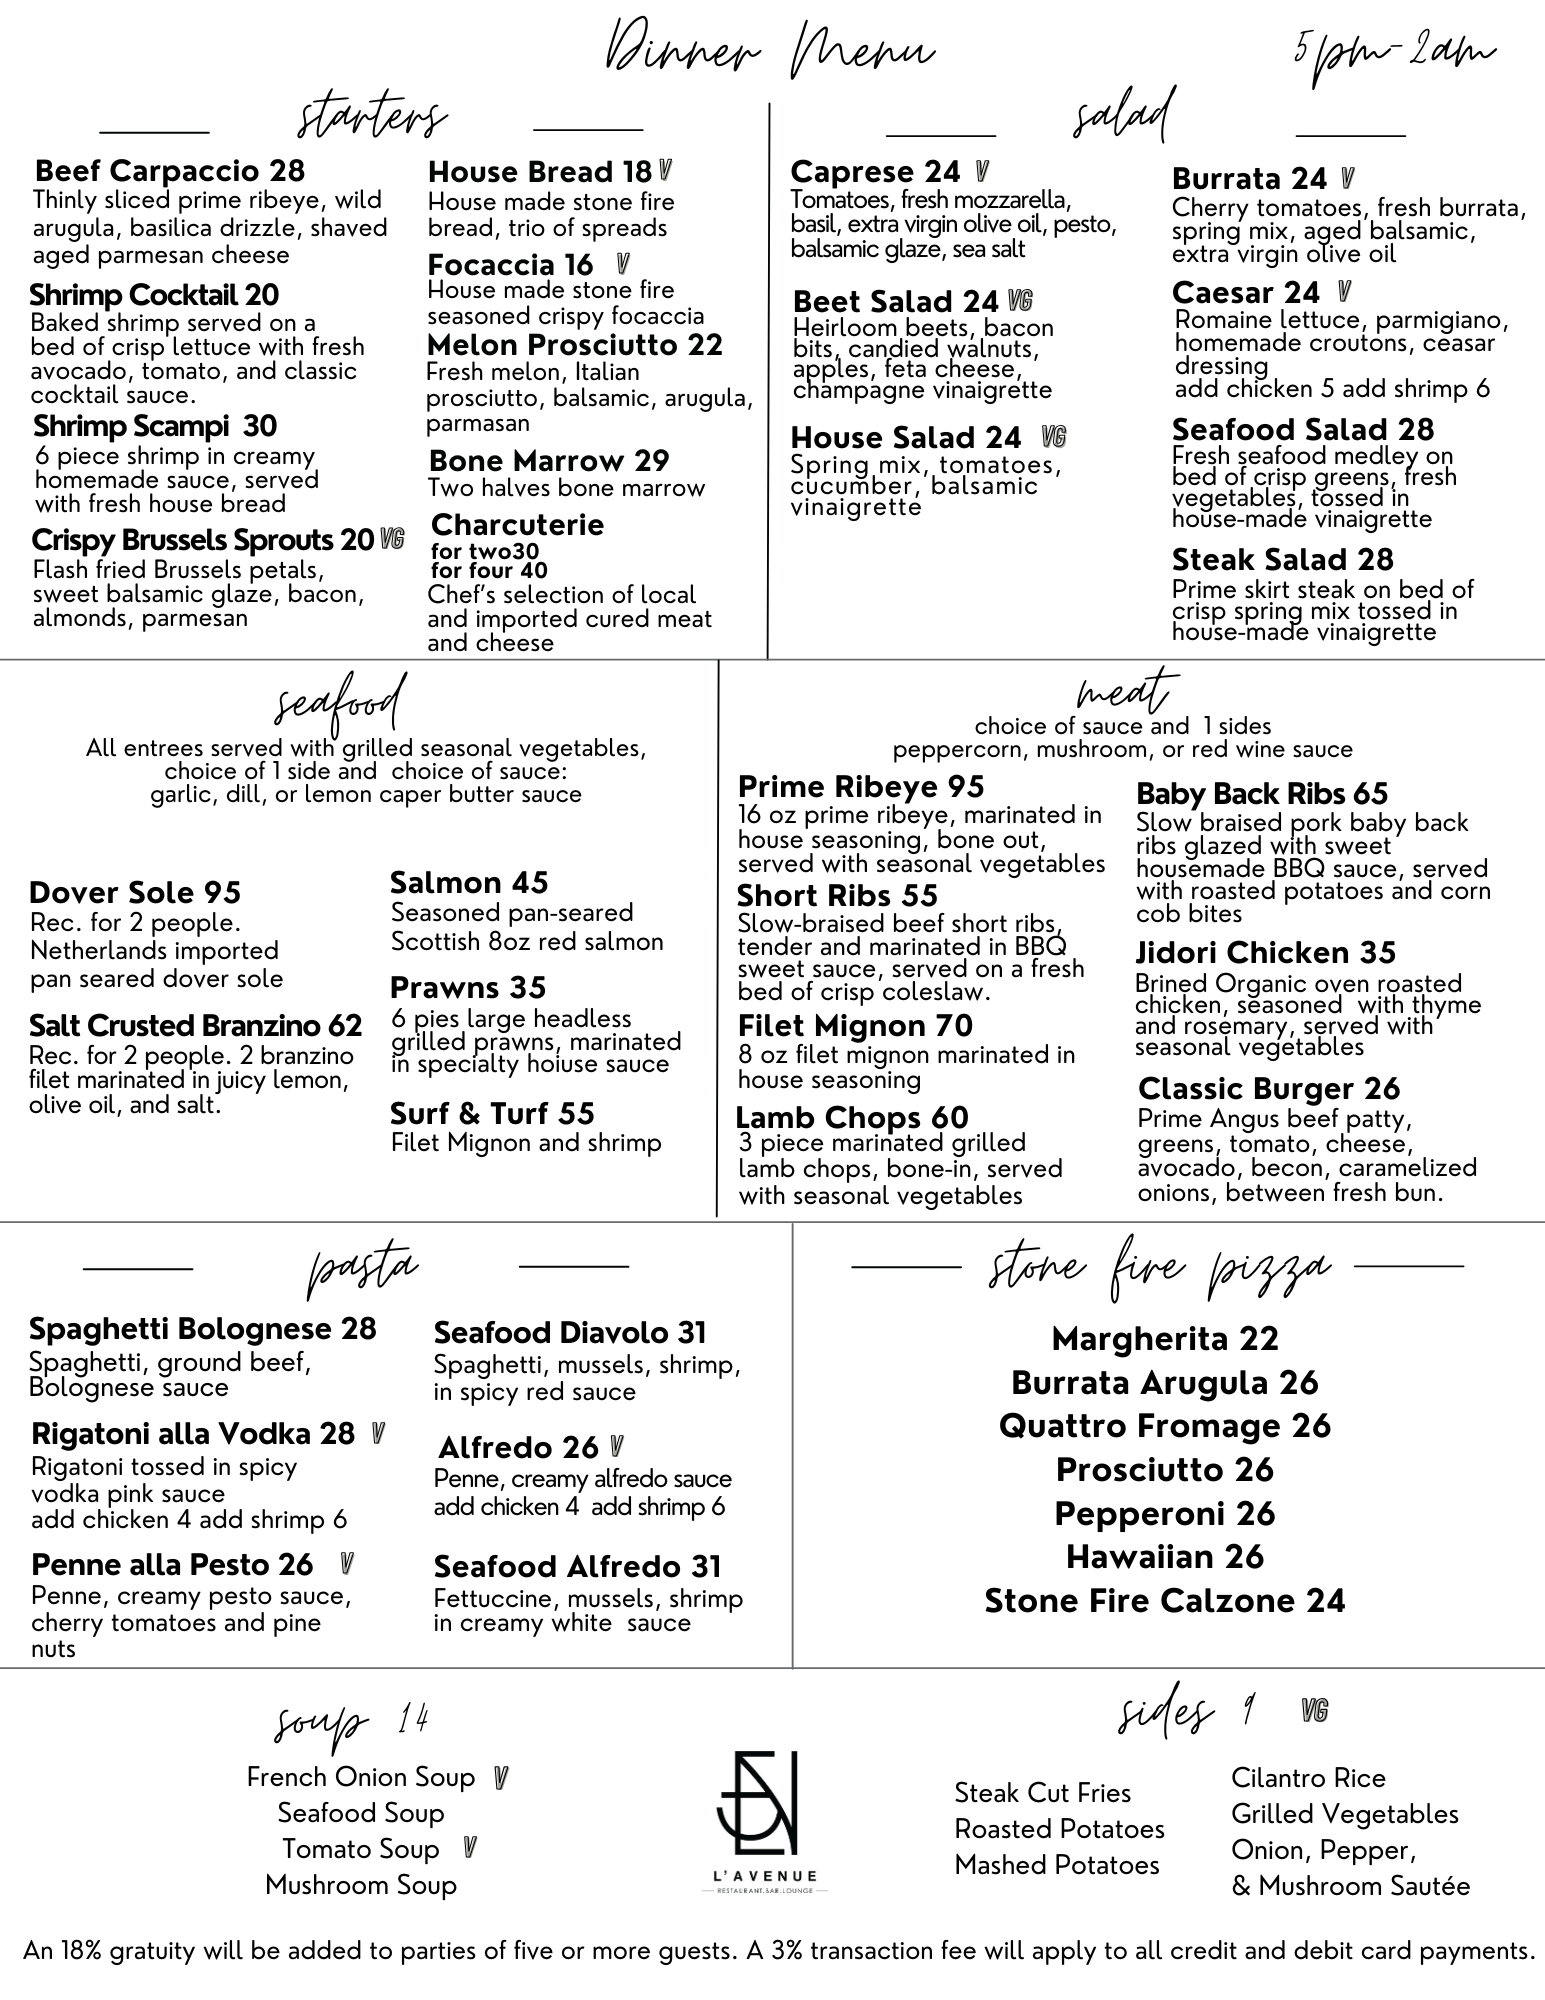 Dinner Menu
5pm-2am
starters
Beef Carpaccio 28
Thinly sliced prime ribeye, wild
arugula, basilica drizzle, shaved
aged parmesan cheese
Shrimp Cocktail 20
Baked shrimp served on a
bed of crisp lettuce with fresh
avocado, tomato, and classic
cocktail sauce.
Shrimp Scampi 30
6 piece shrimp in creamy
homemade sauce, served
with fresh house bread
Crispy Brussels Sprouts 20 VG
Flash fried Brussels petals,
sweet balsamic glaze, bacon,
almonds, parmesan
House Bread 18 V
House made stone fire
bread, trio of spreads
Focaccia 16 V
House made stone fire
seasoned crispy focaccia
Melon Prosciutto 22
Fresh melon, Italian
prosciutto, balsamic, arugula,
parmasan
Bone Marrow 29
Two halves bone marrow
Charcuterie
for two30
for four 40
Chef's selection of local
and imported cured meat
and cheese
salad
Caprese 24 V
Tomatoes, fresh mozzarella,
basil, extra virgin olive oil, pesto,
balsamic glaze, sea salt
Beet Salad 24 VG
Heirloom beets, bacon
bits, candied walnuts,
apples, feta cheese,
champagne vinaigrette
House Salad 24 VG
Spring mix, tomatoes,
cucumber, balsamic
vinaigrette
Burrata 24 V
Cherry tomatoes, fresh burrata,
spring mix, aged balsamic,
extra virgin olive oil
Caesar 24 V
Romaine lettuce, parmigiano,
homemade croutons, ceasar
dressing
add chicken 5 add shrimp 6
Seafood Salad 28
Fresh seafood medley on
bed of crisp greens, fresh
vegetables, tossed in
house-made vinaigrette
Steak Salad 28
Prime skirt steak on bed of
crisp spring mix tossed in
house-made vinaigrette
seafood
All entrees served with grilled seasonal vegetables,
choice of 1 side and choice of sauce:
garlic, dill, or lemon caper butter sauce
Dover Sole 95
Rec. for 2 people.
Netherlands imported
pan seared dover sole
Salt Crusted Branzino 62
Rec. for 2 people. 2 branzino
filet marinated in juicy lemon,
olive oil, and salt.
Salmon 45
Seasoned pan-seared
Scottish 8oz red salmon
Prawns 35
6 pies large headless
grilled prawns, marinated
in specialty hoiuse sauce
Surf & Turf 55
Filet Mignon and shrimp
meat
choice of sauce and 1 sides
peppercorn, mushroom, or red wine sauce
Prime Ribeye 95
16 oz prime ribeye, marinated in
house seasoning, bone out,
served with seasonal vegetables
Short Ribs 55
Slow-braised beef short ribs,
tender and marinated in BBQ
sweet sauce, served on a fresh
bed of crisp coleslaw.
Filet Mignon 70
8 oz filet mignon marinated in
house seasoning
Lamb Chops 60
3 piece marinated grilled
lamb chops, bone-in, served
with seasonal vegetables
Baby Back Ribs 65
Slow braised pork baby back
ribs glazed with sweet
housemade BBQ sauce, served
with roasted potatoes and corn
cob bites
Jidori Chicken 35
Brined Organic oven roasted
chicken, seasoned with thyme
and rosemary, served with
seasonal vegetables
Classic Burger 26
Prime Angus beef patty,
greens, tomato, cheese,
avocado, becon, caramelized
onions, between fresh bun.
pasta
Spaghetti Bolognese 28
Spaghetti, ground beef,
Bolognese sauce
Rigatoni alla Vodka 28 V
Rigatoni tossed in spicy
vodka pink sauce
add chicken 4 add shrimp 6
Penne alla Pesto 26 V
Penne, creamy pesto sauce,
cherry tomatoes and pine
nuts
Seafood Diavolo 31
Spaghetti, mussels, shrimp,
in spicy red sauce
Alfredo 26 V
Penne, creamy alfredo sauce
add chicken 4 add shrimp 6
Seafood Alfredo 31
Fettuccine, mussels, shrimp
in creamy white sauce
stone fire pizza
Margherita 22
Burrata Arugula 26
Quattro Fromage 26
Prosciutto 26
Pepperoni 26
Hawaiian 26
Stone Fire Calzone 24
soup 14
French Onion Soup V
Seafood Soup
Tomato Soup V
Mushroom Soup
L'AVENUE
RESTAURANT.BAR.LOUNGE
sides 9 VG
Steak Cut Fries
Roasted Potatoes
Mashed Potatoes
Cilantro Rice
Grilled Vegetables
Onion, Pepper,
& Mushroom Sautée
An 18% gratuity will be added to parties of five or more guests. A 3% transaction fee will apply to all credit and debit card payments.